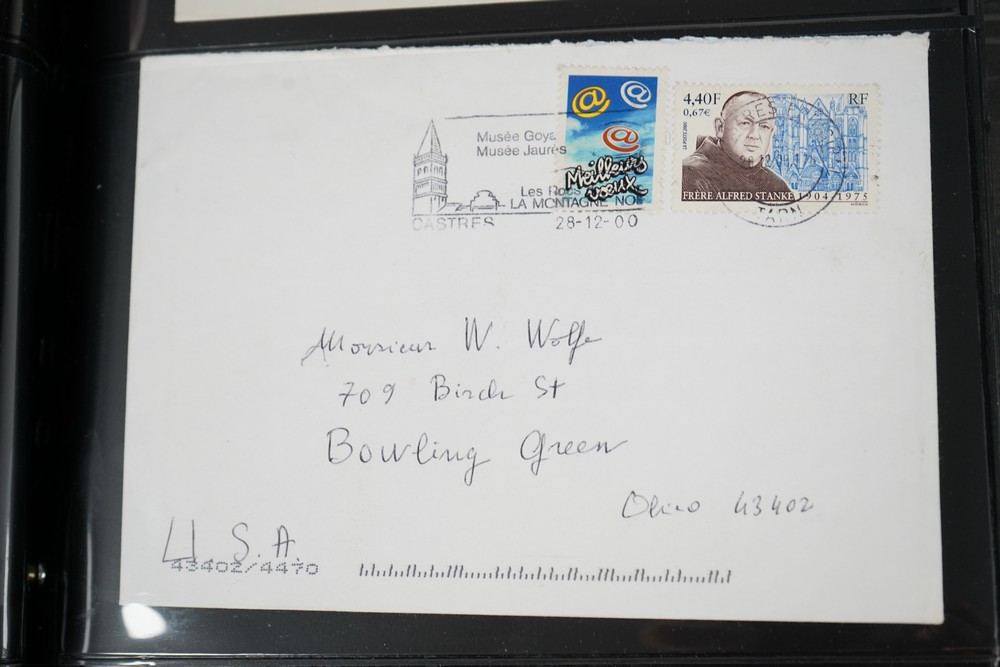 Musée Goya
Musée Jaurès
Les Rocs
LA MONTAGNE NOI
CASTRES
28-12-00
@ @
@
Meilleurs
voeux
4,40F RF
0,67€
LA POSTE 2000
FRÈRE ALFRED STANKE 1904-1975
TARN
Monsieur W. Wolfe
709 Birch St
Bowling Green
Ohio 43402
U.S.A.
43402/4470